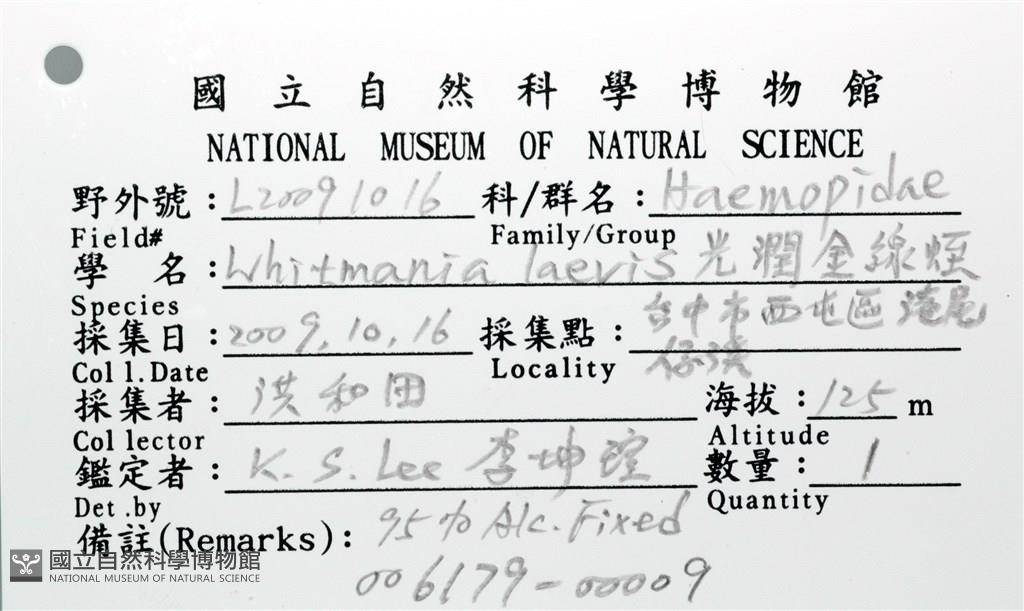 國立自然科學博物館
NATIONAL MUSEUM OF NATURAL SCIENCE
野外號：L20091016 科/群名：Haemopidae
Field# Family/Group
學 名：Whitmania laevis 光潤金線蛭
Species
採集日：2009.10.16 採集點：台中市西屯區
Coll.Date Locality
採集者：洪和田 海拔：125 m
Collector Altitude
鑑定者：K. S. Lee 李坤瑄 數量：1
Det.by Quantity
備註(Remarks)：95% Alc. Fixed
006179-00009
國立自然科學博物館
NATIONAL MUSEUM OF NATURAL SCIENCE